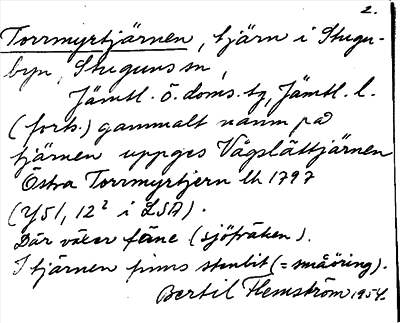 2.
Torrmyrtjärnen, tjärn i Stugu-
byn, Stuguns sn,
Jämtl. ö. doms. tg, Jämtl. l.
(forts.) gammalt namn på
tjärnen uppges Vågslåttjärnen
Östra Torrmyrtjern lh 1797
(Y51, 12² i LSA).
Där växer fäne (sjöfräken).
I tjärnen finns stenbit (= småöring).
Bertil Flemström 1954.